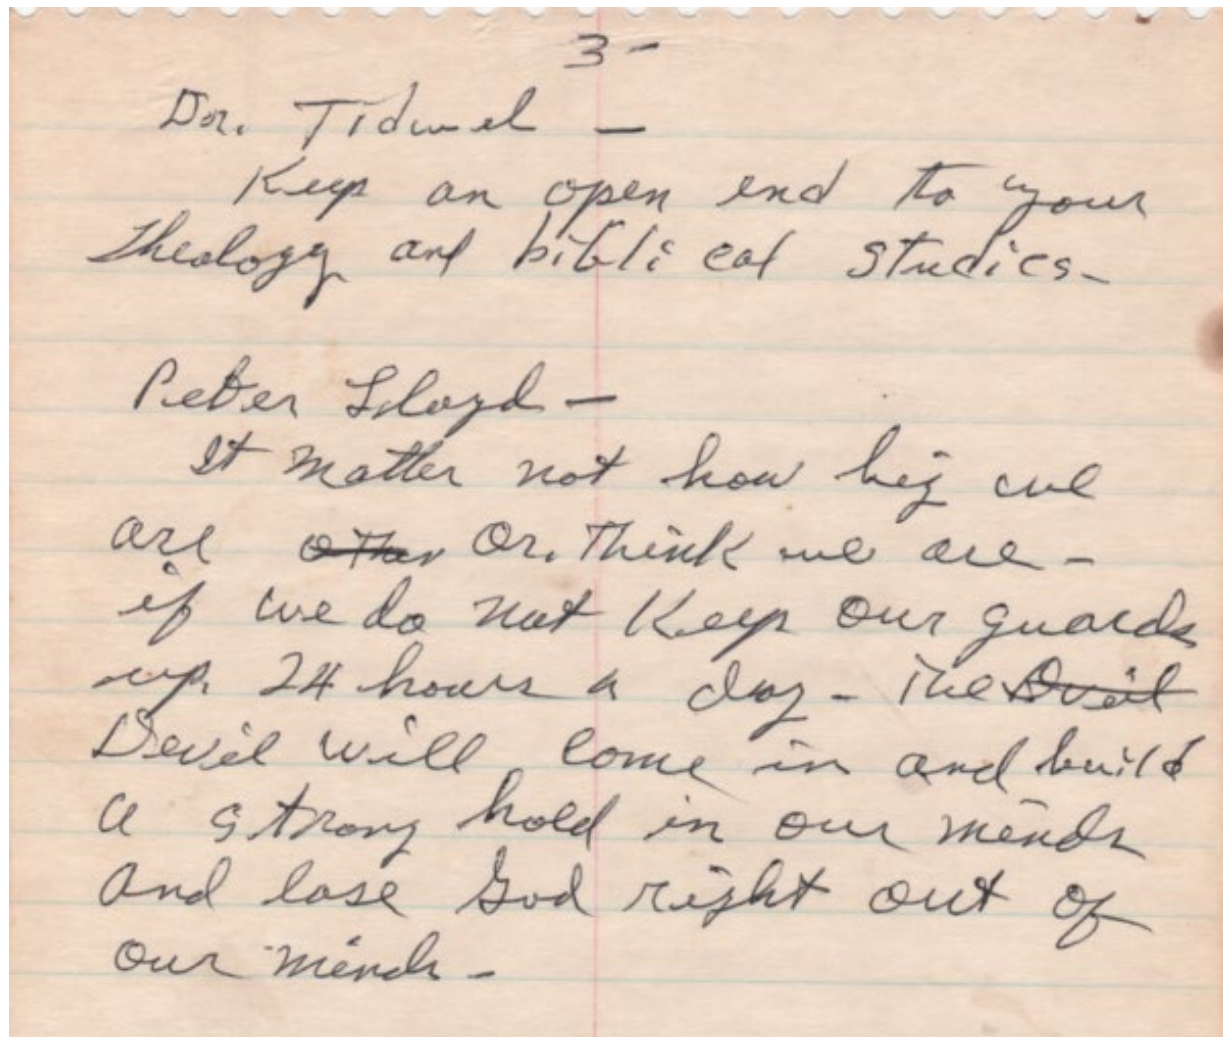 3 -
Dr. Tidwel —
Keep an open end to your
theology and biblical studies -
Peter Lloyd —
It matter not how big we
are other or think we are -
if we do not keep our guards
up 24 hours a day - The Devil
Devil will come in and build
a strong hold in our minds
and lose God right out of
our minds -